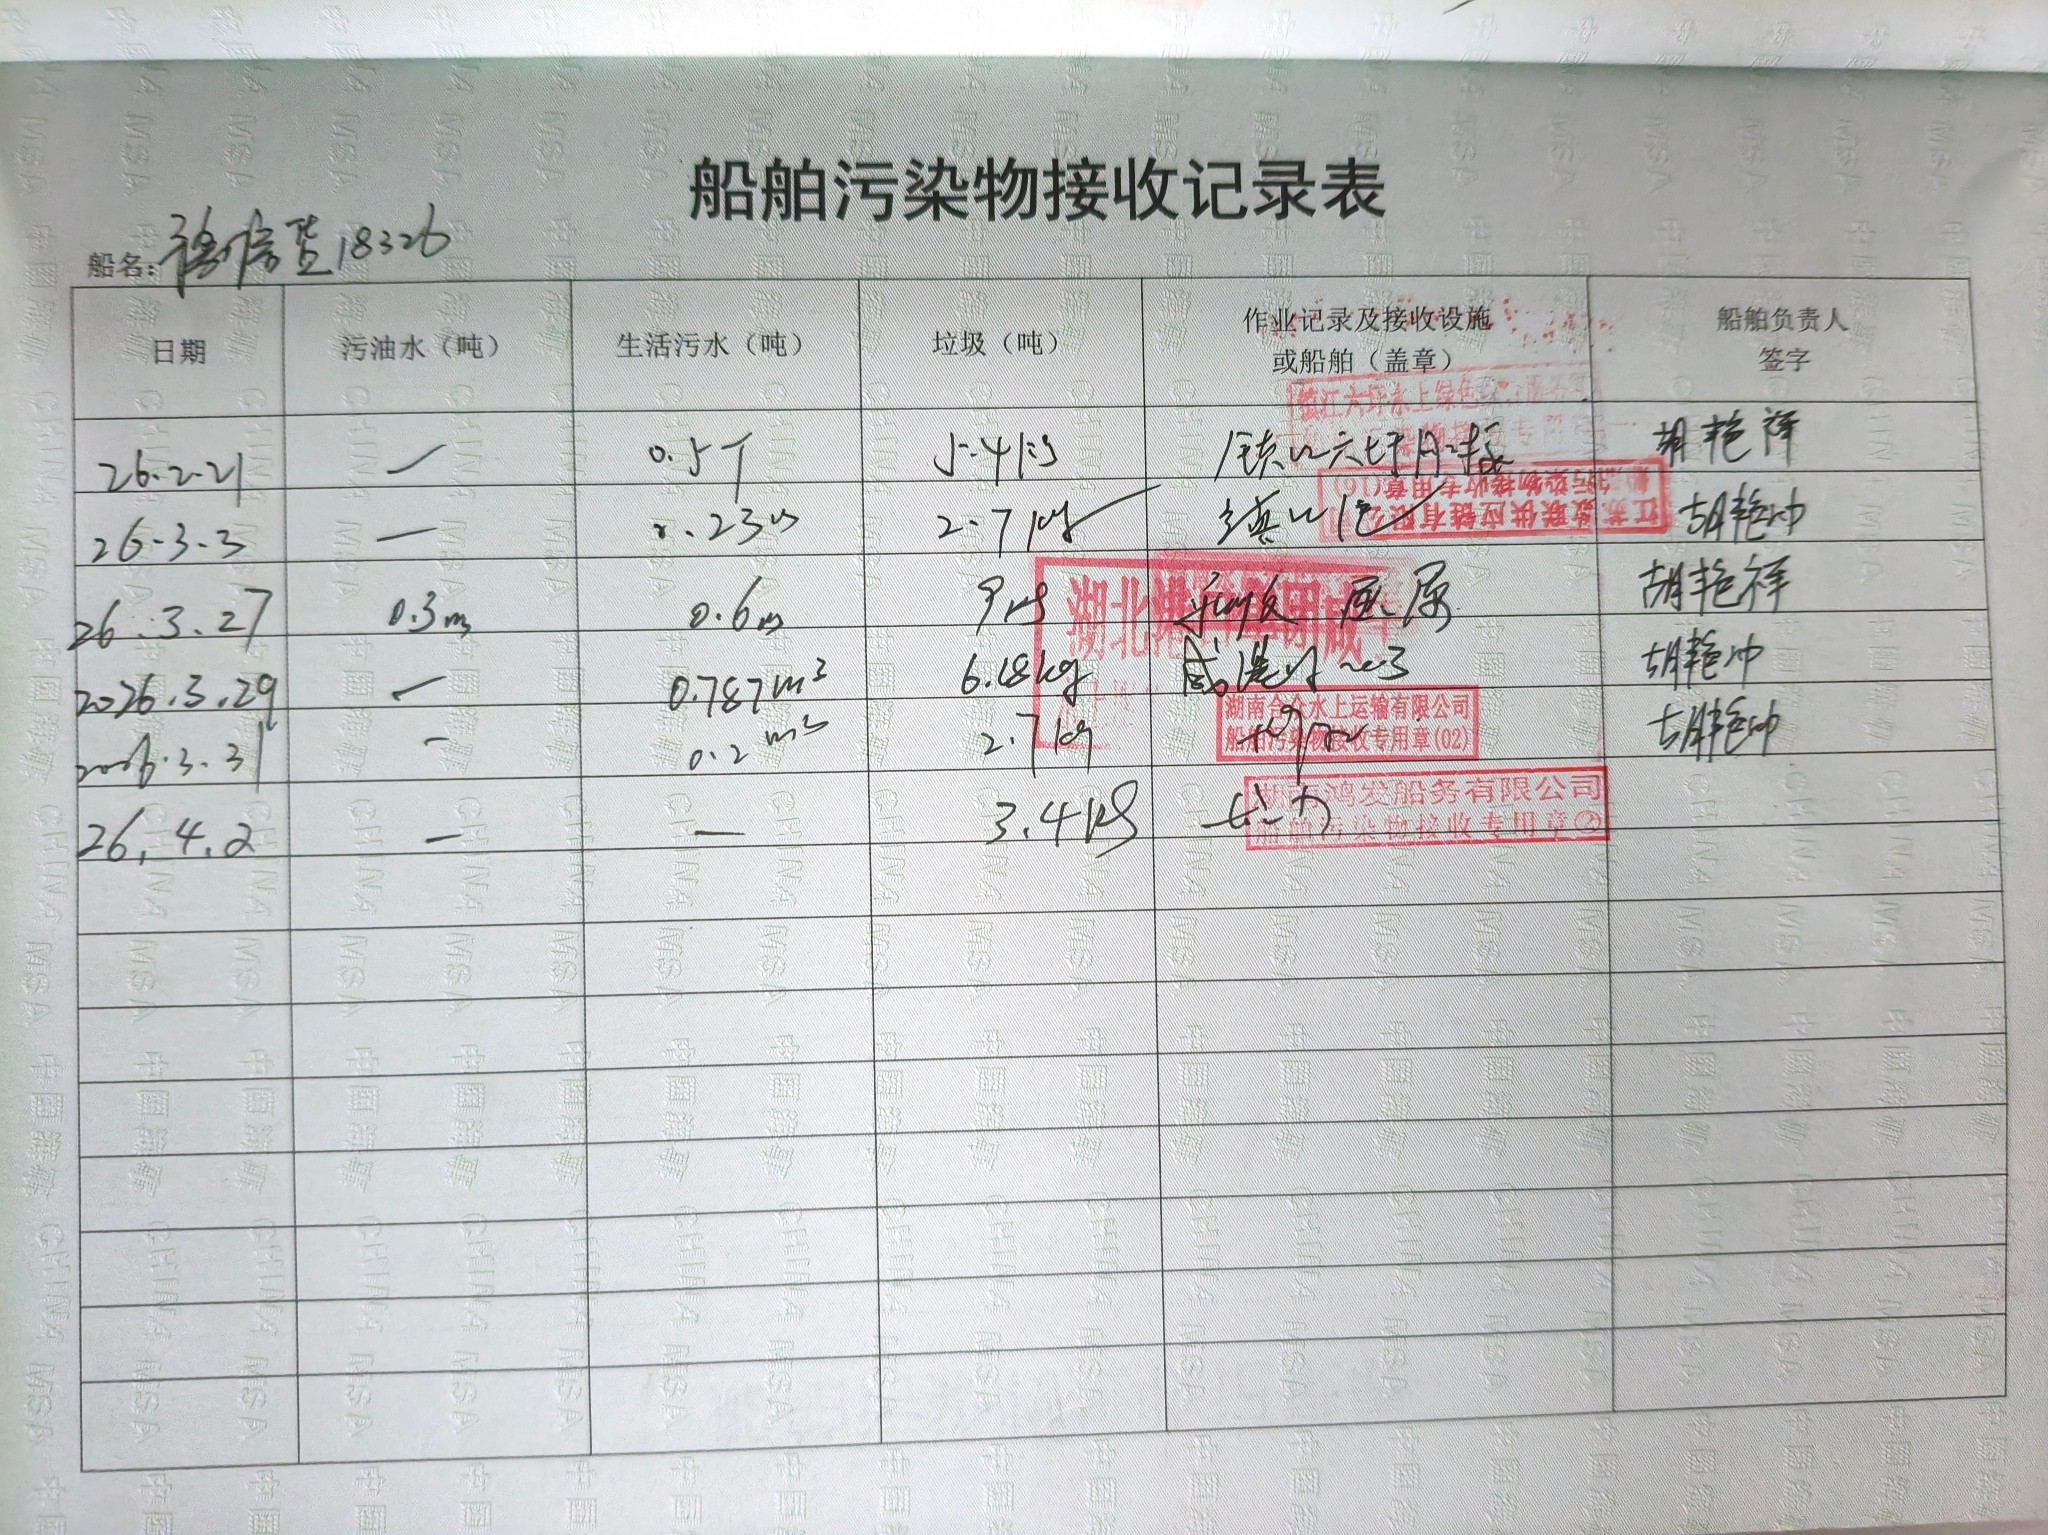 船舶污染物接收记录表
船名: 货18326
日期 污油水（吨） 生活污水（吨） 垃圾（吨） 作业记录及接收设施或船舶（盖章） 船舶负责人签字
26.2.21 — 0.5T 5.4kg 镇江六圩 胡艳祥
26.3.3 — 0.23m 2.7kg 镇江 胡艳
26.3.27 0.3m 0.6m 9kg 胡艳祥
2026.3.29 — 0.787m³ 6.18kg 咸港 003 胡艳
2026.3.31 - 0.2m³ 2.7kg 胡艳
26.4.2 — — 3.4kg
镇江六圩水上绿色
江苏数联供应链有限公司
污染物接收专用章(16)
湖北港 集团咸
湖南合众水上运输有限公司
船舶污染物接收专用章(02)
鸿发船务有限公司
船舶污染物接收专用章②
中国海事 CHINA MSA